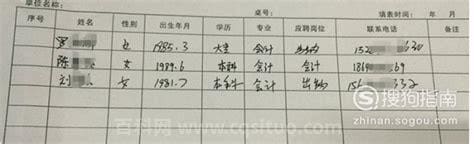 单位名称: 桌号: 填表时间: 年 月
序号 姓名 性别 出生年月 学历 专业 应聘岗位 联系电话
罗 女 1985.3 大专 会计 152 630
陈 女 1989.6 本科 会计 会计 186 69
刘 女 1981.7 本科 会计 出纳 156 332
搜狗指南
zhinan.sogou.com
百科网
www.cqsituo.com